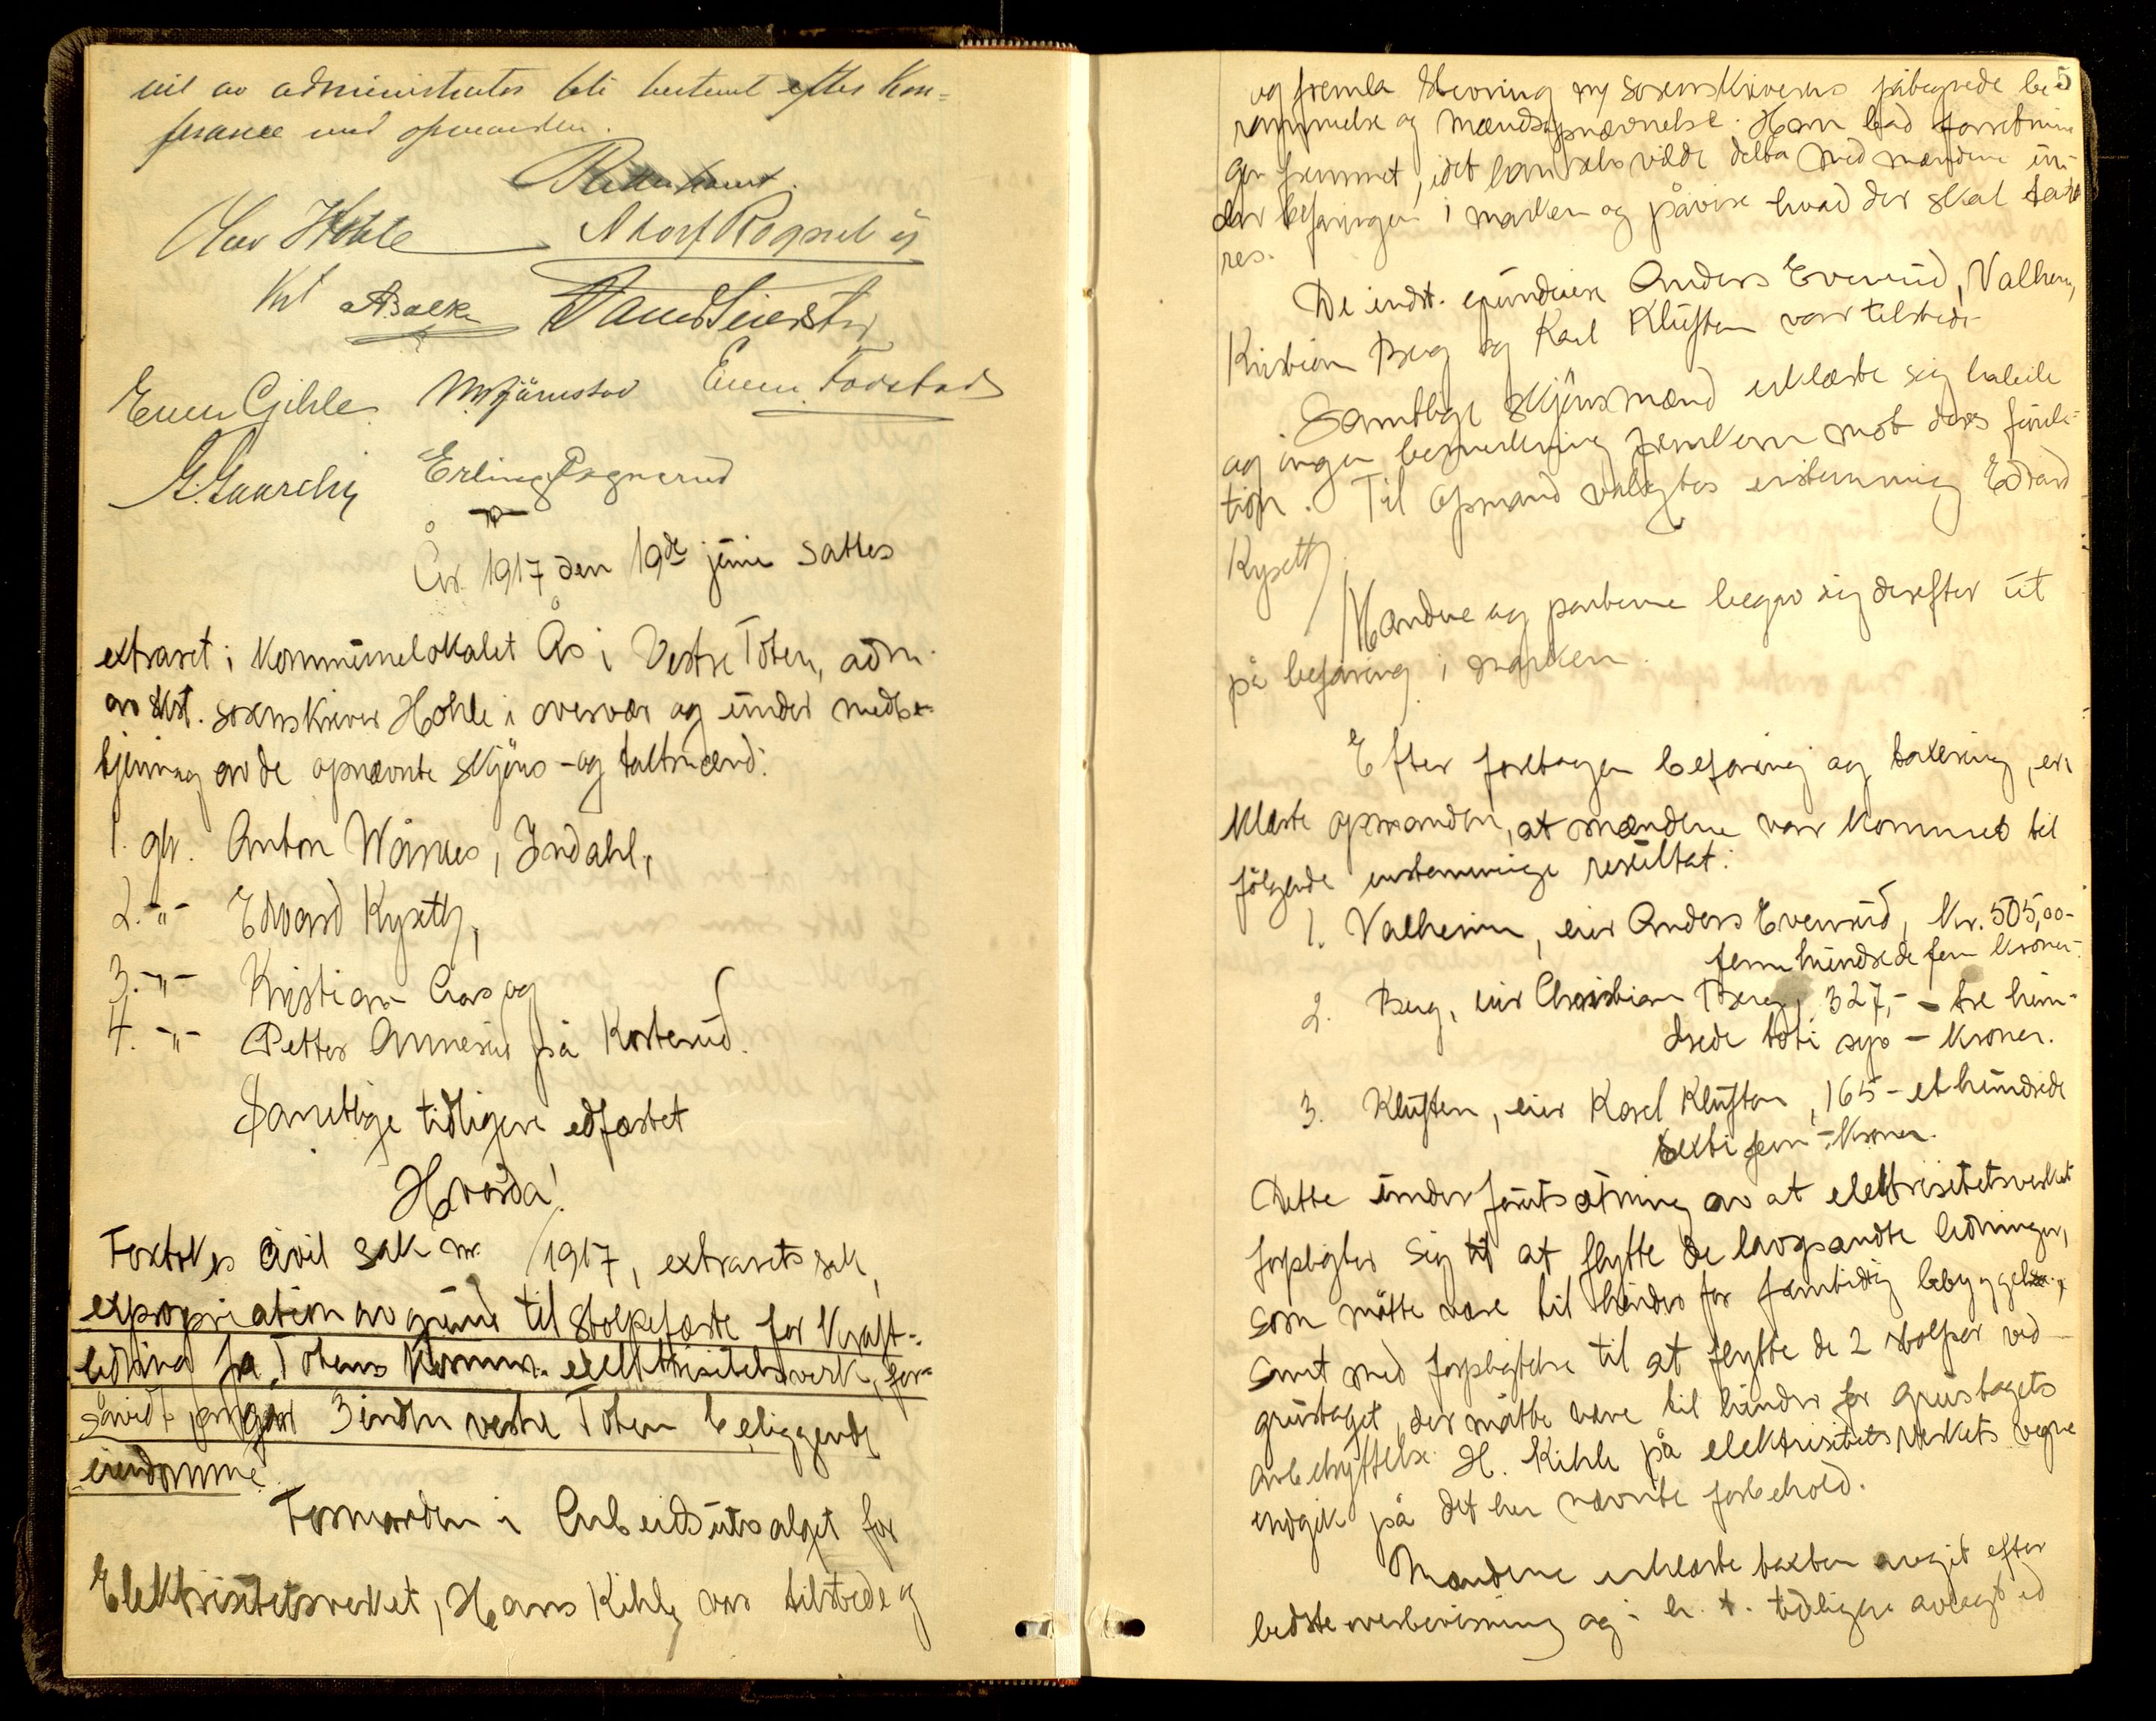 vil av administrator bli bestemt efter Kon-
ferance med opmanden.
Olav Hohle
Kst ABacke
Even Gihle Even Fodstad
Erling Rognerud
År 1917 den 19de juni sattes
extraret i kommunelokalet Ås i Vestre Toten, adm.
av kst. sorenskriver Hohle i overvær og under medbe-
tjening av de opnævnte skjöns- og taltmænd:
1. gbr. Anton Wårnes, Indahl,
2. -"- Edvard Kyseth,
3. -"- Kristian Aas og
4. -"- Petter Annerud på Kosterud.
Samtlige tidligere edfæstet
Hvorda!
Foretokes civil sak nr. /1917, extrarets sak,
expropriation av grund til stolpefæste for Kraft-
ledning fra Totens Komm. elektrisitetsverk, for-
såvidt angår 3 inden vestre Toten beliggende
eiendomme.
Formanden i Arbeidsutvalget for
Elektrisitetsverket, Hans Kihle var tilstede og
5
og fremla stevning m/ sorenskriverens påtegnede be-
rammelse og mændsopnævnelse. Han bad forretnin-
gen fremmet, idet han selv vilde delta med mændene un-
der befaringen i marken og påvise hvad der skal takse-
res.
De indst. grundeiere Anders Evenrud, Valheim,
Kristian Berg og Karl Kluften var tilstede
Samtlige skjönsmænd erklærte sig habile
og ingen bemerkning fremkom mot deres funk-
tion. Til opmand valgtes enstemmig Edvard
Kyseth.
Mændene og parterne begav sig derefter ut
på befaring i marken.
Efter foretagen befaring og taksering, er-
klærte opmanden, at mændene var kommet til
fölgende enstemmige resultat:
1. Valheim, eier Anders Evenrud, Kr. 505,00-
femhundrede fem kroner.
2. Berg, eier Christian Berg, 327,- - tre hun-
drede toti syv - kroner.
3. Kluften, eier Karl Kluften, 165 - ethundrede
sexti fem - kroner.
Dette under forutsætning av at elektrisitetsverket
forpligter sig til at flytte de lavspændte ledninger,
som måtte være til hinder for fremtidig bebyggelse,
samt med forpligtelse til at flytte de 2 stolper ved
grustaget, der måtte være til hinder for grustagets
arbenyttelse. H. Kihle på elektrisitetsverkets vegne
indgik på det her nævnte forbehold.
Mændene erklærte taxten avgit efter
bedste overbevisning og i h. t. tidligere avlagt ed